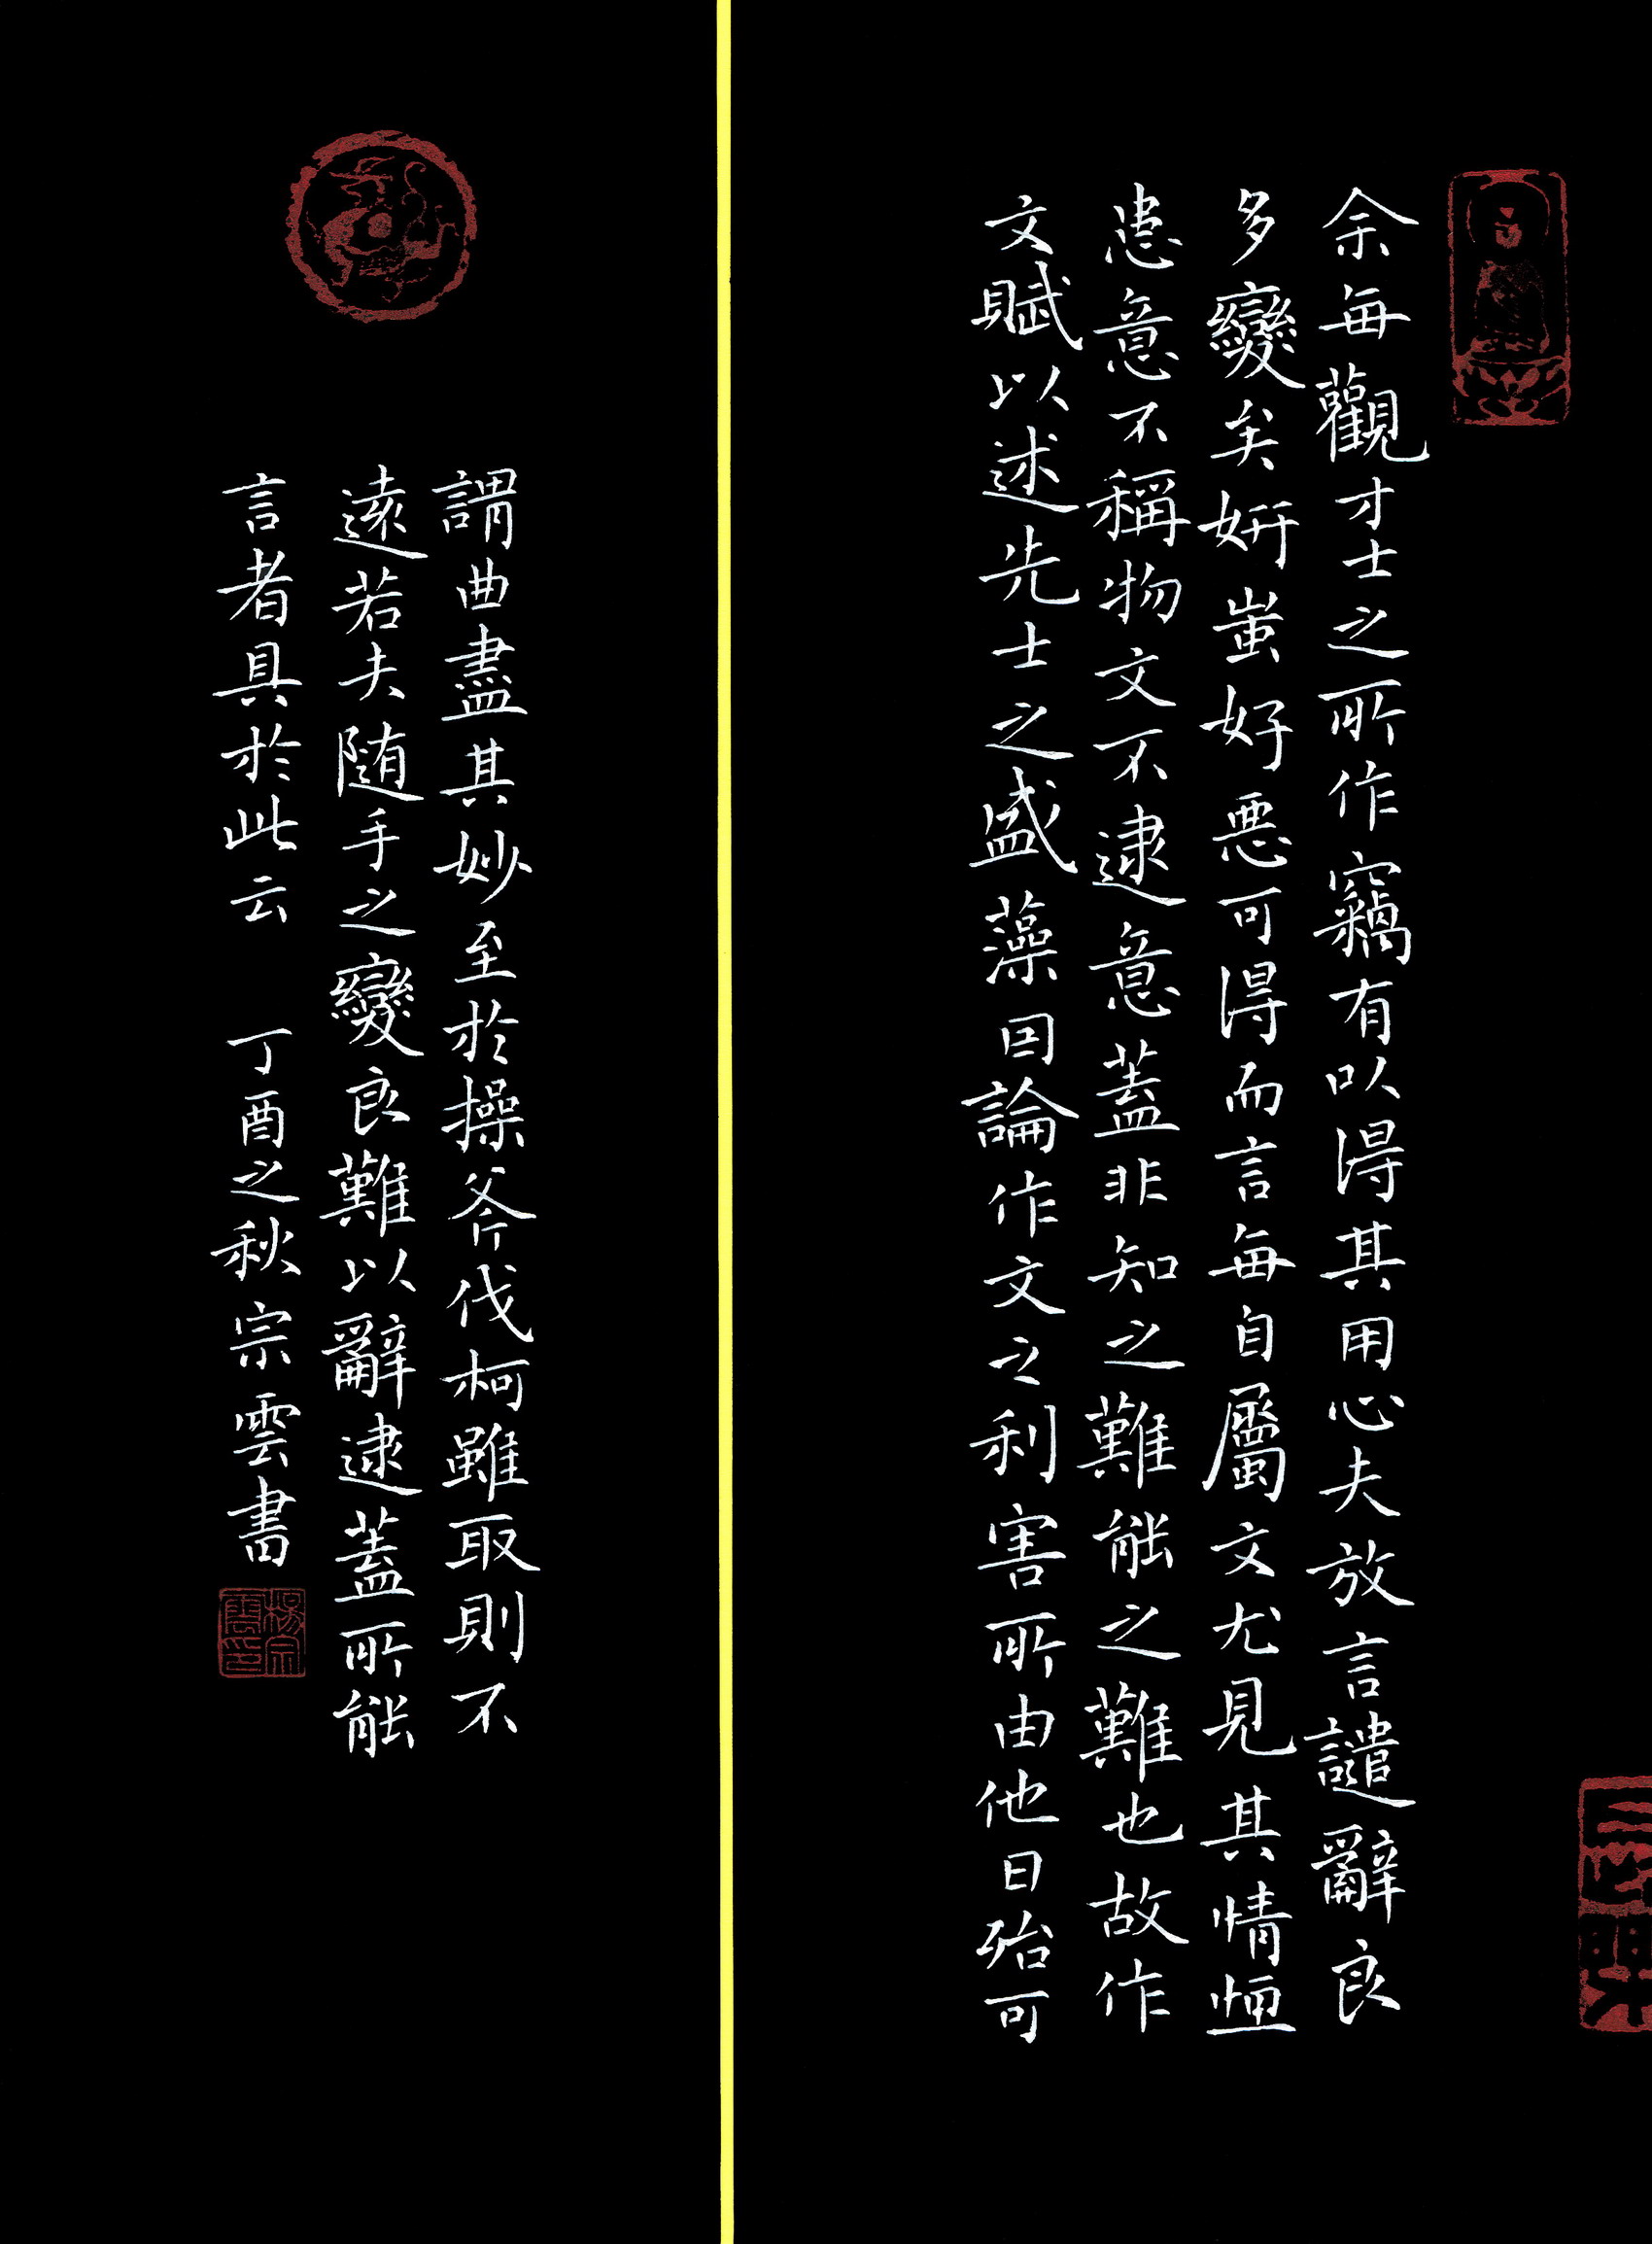 余每觀才士之所作竊有以得其用心夫放言譴辭良
多變矣妍蚩好惡可得而言每自屬文尤見其情恒
患意不稱物文不逮意蓋非知之難能之難也故作
文賦以述先士之盛藻因論作文之利害所由他日殆可
謂曲盡其妙至於操斧伐柯雖取則不
遠若夫随手之變良難以辭逮蓋所能
言者具於此云 丁酉之秋宗雲書
楊宗雲印